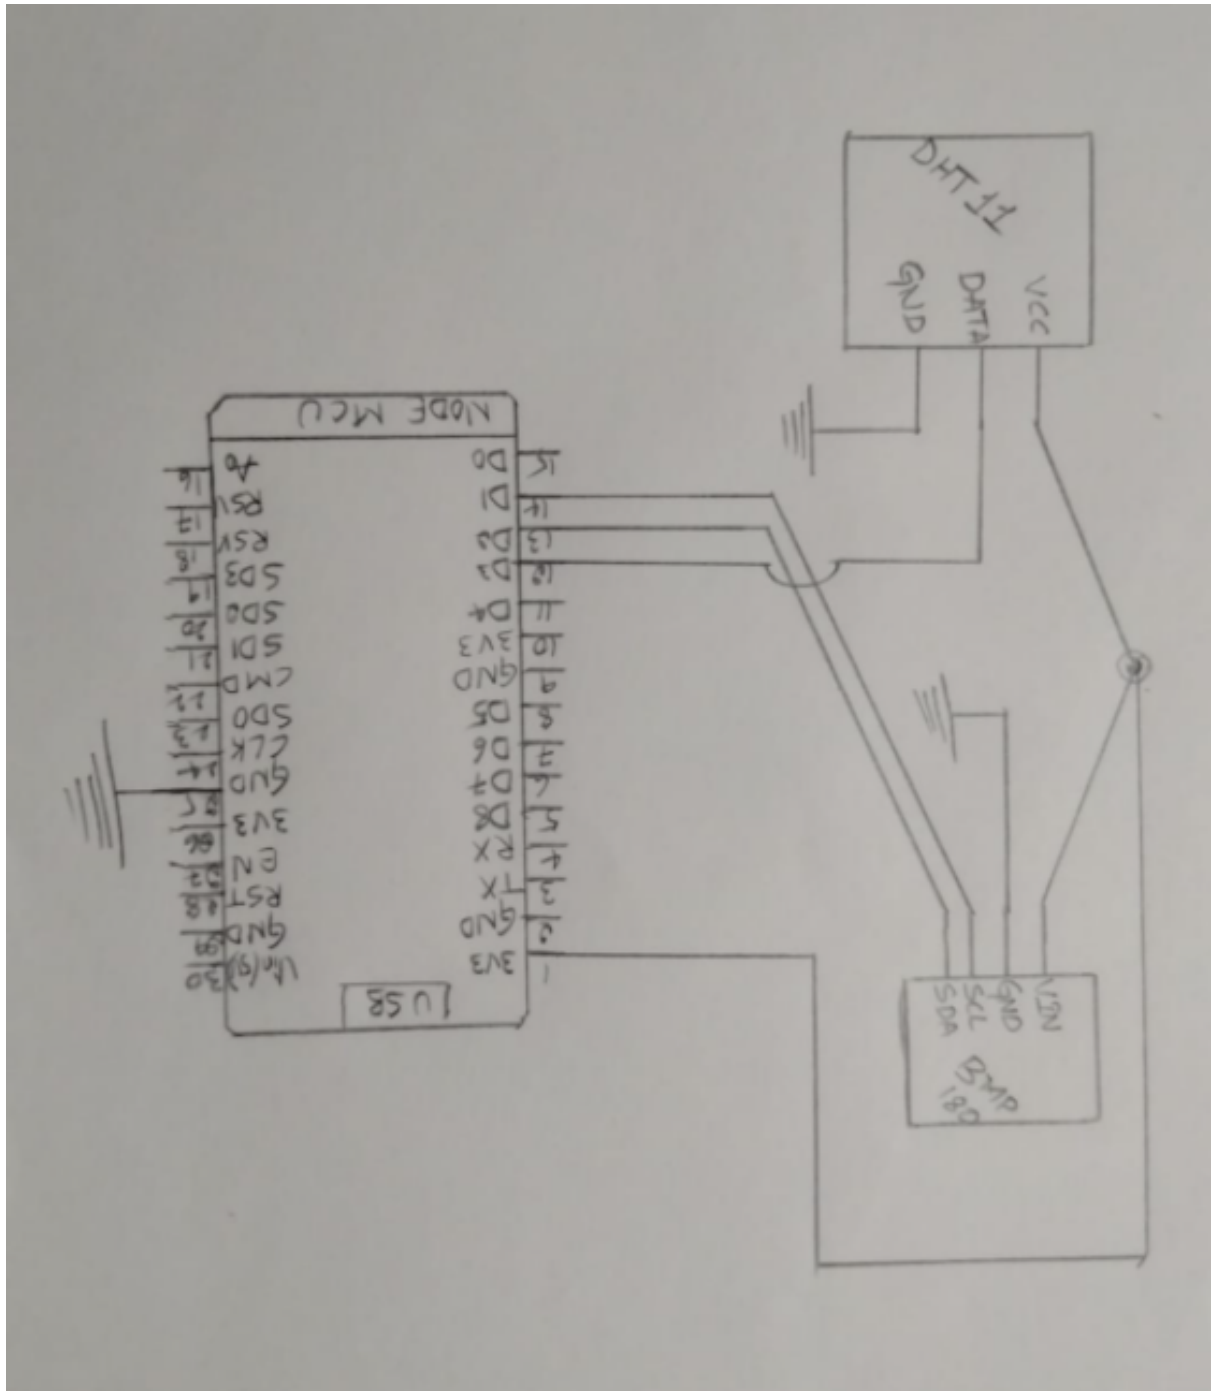 DHT 11
GND
DATA
VCC
NODE MCU
D0
15
D1
14
D2
13
12
D4
11
3V3
10
GND
9
D5
8
D6
7
D7
6
D8
5
RX
4
TX
3
GND
2
3V3
1
A0
16
RSV
17
RSV
18
SD3
19
SD2
20
SD1
21
CMD
22
SD0
23
CLK
24
GND
25
3V3
26
EN
27
RST
28
GND
29
30
USB
SDA
SCL
GND
VIN
BMP
180